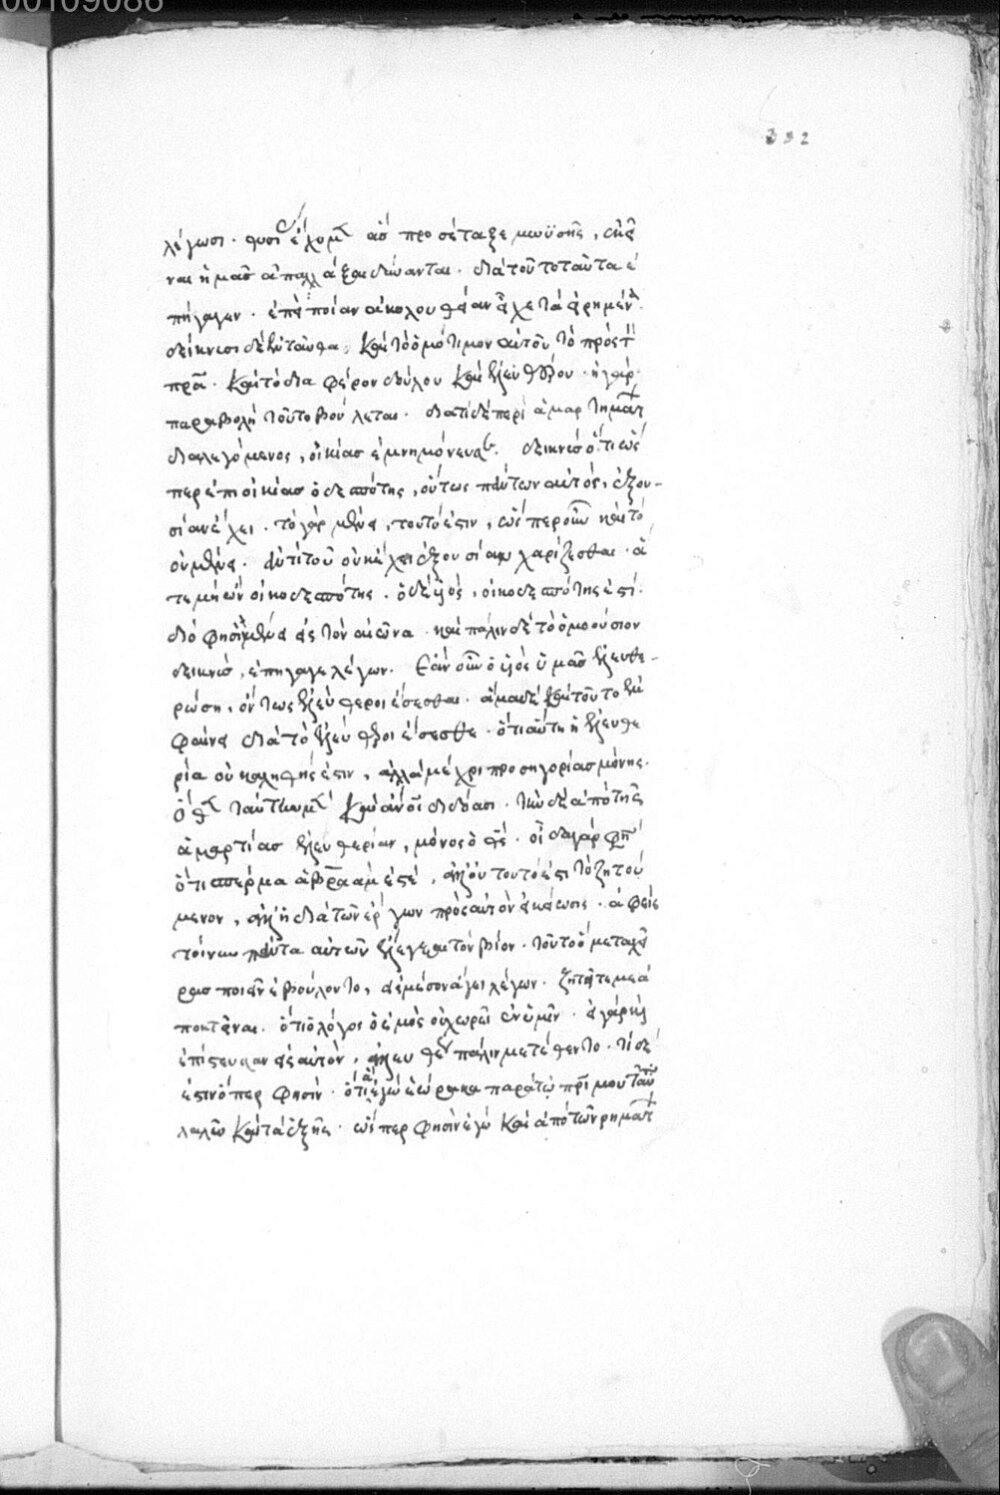 00109086
332
λέγωσι. θυσί ἔχομεν ἃς προσέταξε μωϋσῆς, ἐκεῖ
ναι ἡμᾶς ἀπαλλάξαι δύνανται. διὰ τοῦτο ταῦτα ἐ
πήγαγεν. ἐπεὶ ποίαν ἀκολουθίαν εἶχε τὰ εἰρημένα.
δείκνυσι δὲ ἐνταῦθα, καὶ τὸ ὁμότιμον αὐτοῦ τὸ πρὸς τ
πρα. καὶ τὸ διαφέρον δούλου καὶ ἐλευθέρου. ἡ γὰρ
παραβολὴ τοῦτο βούλεται. διατί δὲ περὶ ἁμαρτημάτ
διαλεγόμενος, οἰκίας ἐμνημόνευσεν. δεικνὺς ὅτι ὥσ
περ ἐπὶ οἰκίας ὁ δεσπότης, οὕτως πάντων αὐτός, ἐξου-
σίαν ἔχει. τὸ γὰρ μένει, τοῦτό ἐστιν, ὥσπερ οὖν καὶ τὸ
οὐ μένει. ἀντὶ τοῦ οὐκ ἔχει ἐξουσίαν χαρίζεσθαι. ἅ
τε μὴ ὢν οἰκοδεσπότης. ὁ δὲ υἱός, οἰκοδεσπότης ἐστί.
διό φησι μένει εἰς τὸν αἰῶνα. καὶ πάλιν δὲ τὸ ὁμοούσιον
δεικνύς, ἐπήγαγε λέγων. Ἐὰν οὖν ὁ υἱὸς ὑμᾶς ἐλευθε-
ρώση, ὄντως ἐλεύθεροι ἔσεσθαι. ἅμα δὲ καὶ τοῦτο ἐμ
φαίνει διὰ τὸ ἐλεύθεροι ἔσεσθε. ὅτι αὕτη ἡ ἐλευθε
ρία οὐκ ἀληθής ἐστιν, ἀλλὰ μέχρι προσηγορίας μόνης.
ταύτην μὲν καὶ ἀνοι διδόασι. τὴν δὲ ἀπὸ τῆς
ἁμαρτίας ἐλευθερίαν, μόνος ὁ θς. οἶδα γάρ φη
ὅτι σπέρμα ἀβραάμ ἐστέ, ἀλλ' οὐ τοῦτό ἐστι τὸ ζητού
μενον, ἀλλ' ἡ διὰ τῶν ἔργων πρὸς αὐτὸν οἰκείωσις. ἀφεὶς
τοίνυν πάντα αὐτῶν ἐλέγξαι τὸν βίον. τοῦτο ὃ μετὰ χεῖ
ρας ποιεῖν ἐβούλοντο, εἰς μέσον ἄγει λέγων. ζητεῖτέ με ἀ
ποκτεῖναι. ὅτι ὁ λόγος ὁ ἐμὸς οὐ χωρεῖ ἐν ὑμῖν. εἰ γὰρ καὶ
ἐπίστευσαν εἰς αὐτόν, ἀλλ' εὐθέως πάλιν μετέθεντο. τί δέ
ἐστιν ὅπερ φησίν. ὅτι ἃ ἐγὼ ἑώρακα παρὰ τῷ πρι μου ταῦτα
λαλῶ καὶ τὰ ἑξῆς. ὥσπερ φησὶν ἐγὼ καὶ ἀπὸ τῶν ῥημάτ